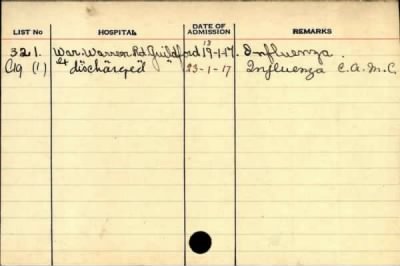 LIST No HOSPITAL DATE OF ADMISSION REMARKS
13
321. War. Warren Rd. Guildford 19-1-17. Influenza.
C19 (1) " discharged 23-1-17 Influenza C.A.M.C.